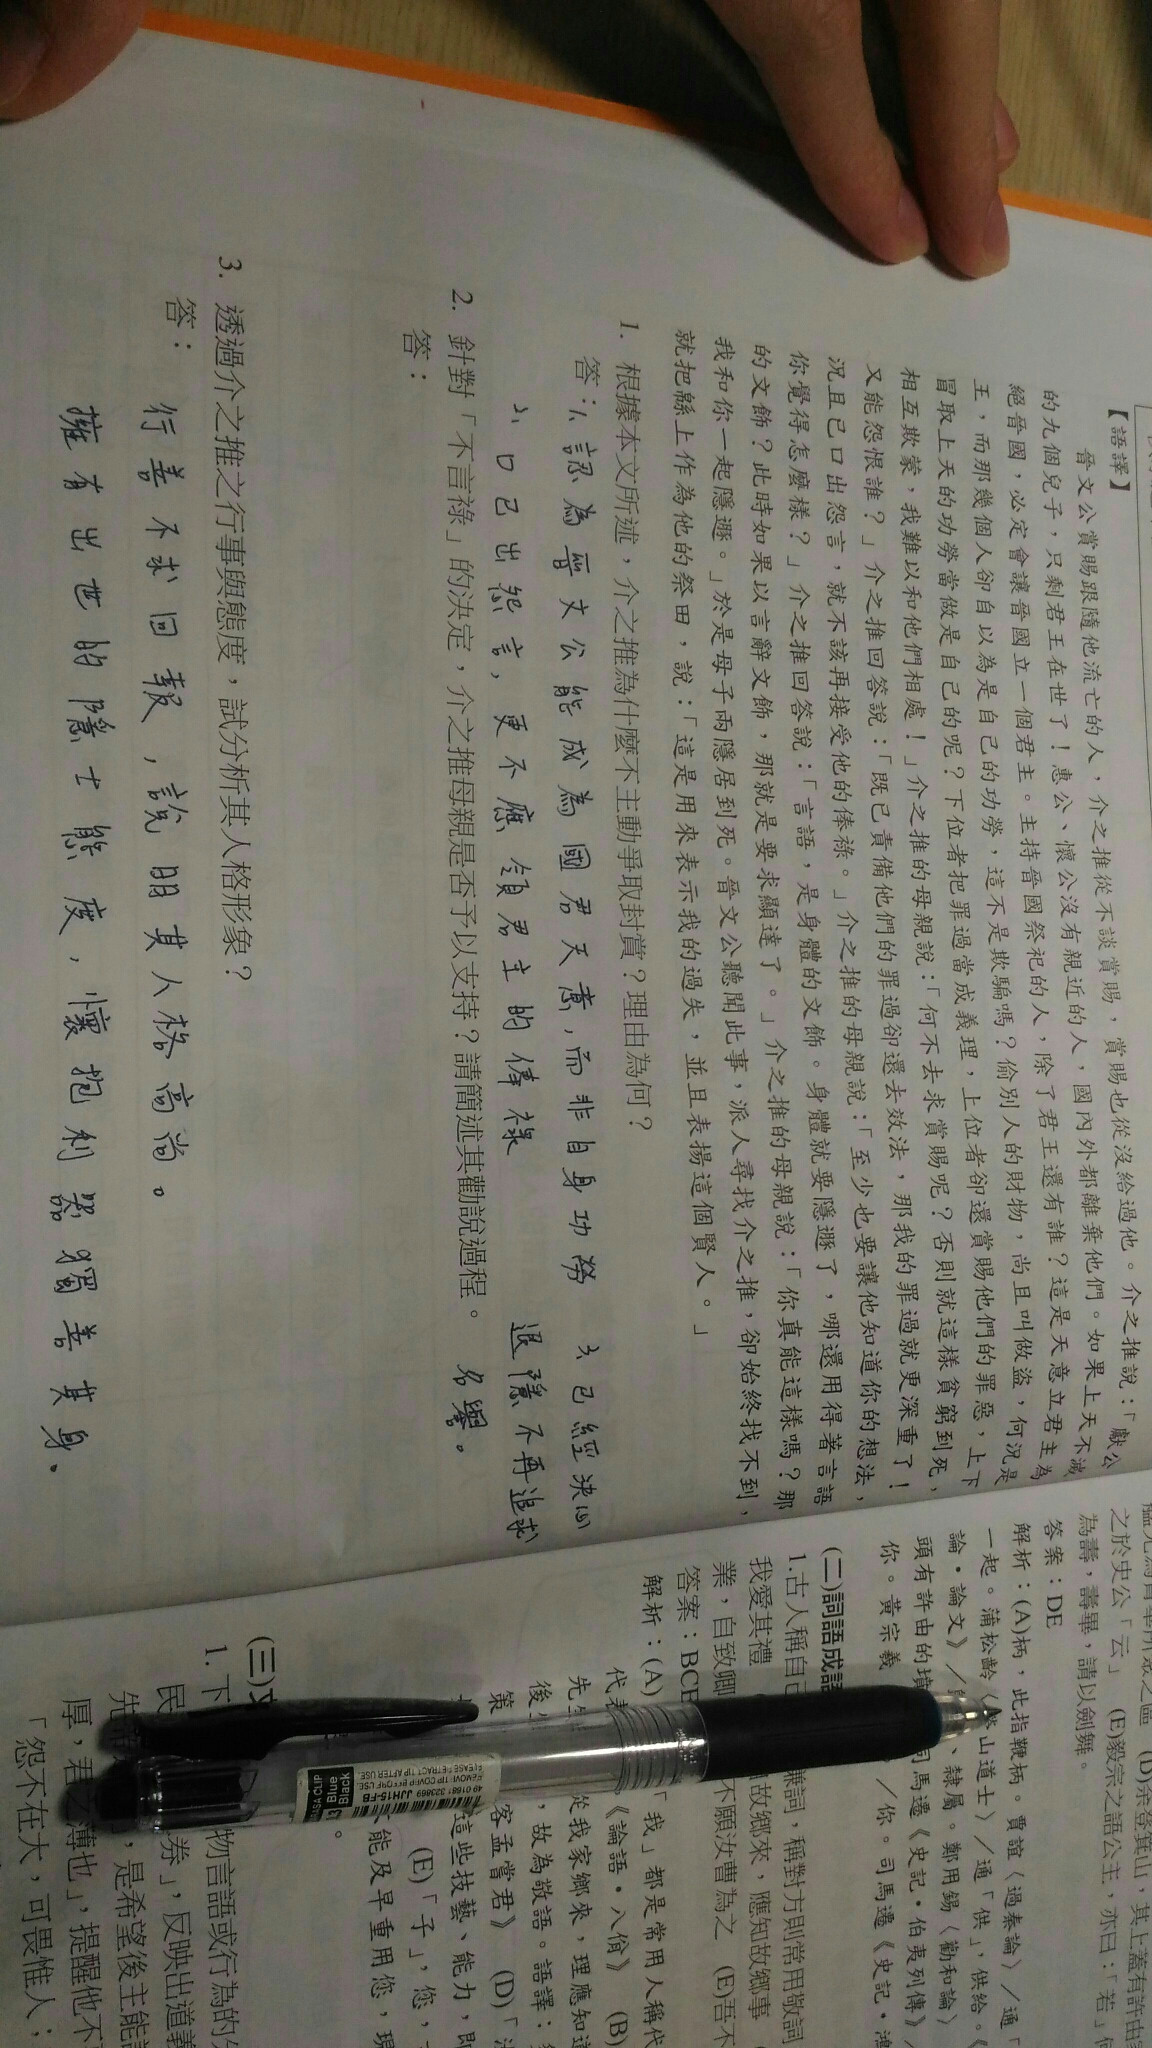 【語譯】
晉文公賞賜跟隨他流亡的人，介之推從不談賞賜，賞賜也從沒給過他。介之推說：「獻公
的九個兒子，只剩君王在世了！惠公、懷公沒有親近的人，國內外都離棄他們。如果上天不滅
絕晉國，必定會讓晉國立一個君主。主持晉國祭祀的人，除了君王還有誰？這是天意立君主為
王，而那幾個人卻自以為是自己的功勞，這不是欺騙嗎？偷別人的財物，尚且叫做盜，何況是
冒取上天的功勞當做是自己的呢？下位者把罪過當成義理，上位者卻還賞賜他們的罪惡，上下
相互欺蒙，我難以和他們相處！」介之推的母親說：「何不去求賞賜呢？否則就這樣貧窮到死，
又能怨恨誰？」介之推回答說：「既已責備他們的罪過卻還去效法，那我的罪過就更深重了！
況且已口出怨言，就不該再接受他的俸祿。」介之推的母親說：「至少也要讓他知道你的想法，
你覺得怎麼樣？」介之推回答說：「言語，是身體的文飾。身體就要隱遯了，哪還用得著言語
的文飾？此時如果以言辭文飾，那就是要求顯達了。」介之推的母親說：「你真能這樣嗎？那
我和你一起隱遯。」於是母子兩隱居到死。晉文公聽聞此事，派人尋找介之推，卻始終找不到，
就把緜上作為他的祭田，說：「這是用來表示我的過失，並且表揚這個賢人。」
1. 根據本文所述，介之推為什麼不主動爭取封賞？理由為何？
答：1、認為晉文公能成為國君天意，而非自身功勞
2、口已出怨言，更不應領君主的俸祿
3、已經決心
退隱不再追求
名譽。
2. 針對「不言祿」的決定，介之推母親是否予以支持？請簡述其勸說過程。
答：
3. 透過介之推之行事與態度，試分析其人格形象？
答：
行善不求回報，說明其人格高尚。
擁有出世的隱士態度，懷抱利器獨善其身。
之於史公「云」 (E)毅宗之語公主，亦曰：「若」
為壽，壽畢，請以劍舞。
答案：DE
解析：(A)柄，此指鞭柄。賈誼〈過秦論〉／通「
一起。蒲松齡〈山道士〉／通「供」，供給。《
論‧論文》／、隸屬。鄭用錫〈勸和論〉
頭有許由的墳司馬遷《史記‧伯夷列傳》／
你。黃宗羲／你。司馬遷《史記‧
(二)詞語成語
1.古人稱自己謙詞，稱對方則常用敬詞
我愛其禮故鄉來，應知故鄉事
業，自致卿不願汝曹為之 (E)吾不
答案：BCE
解析：(A)「我」都是常用人稱代
代表《論語‧八佾》 (B)
先生從我家鄉來，理應知道
後，故為敬語。語譯：
策客孟嘗君》 (D)「
這些技藝、能力，即
(E)「子」，您，
能及早重用您，現
。
(三)
1. 下物言語或行為的
民券」，反映出道義
先，是希望後主能
厚，君薄也」，提醒他不
「怨不在大，可畏惟人；
Black
Blue
JJH15-FB